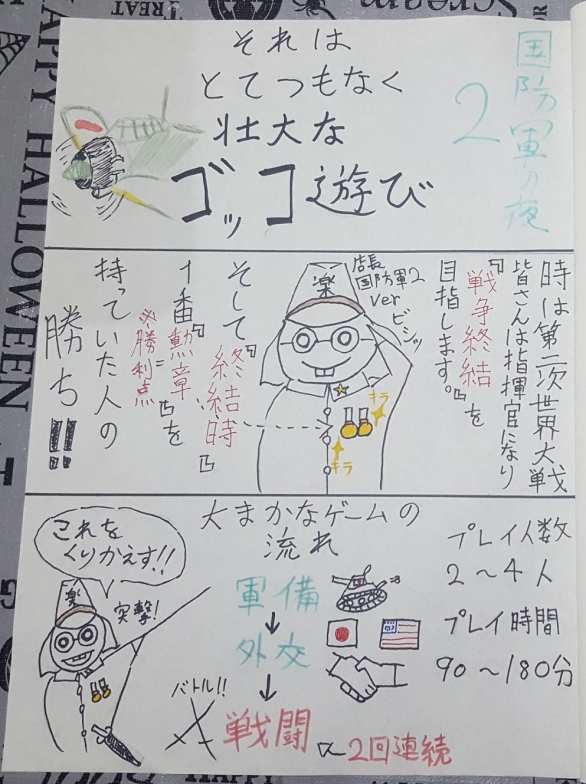 それは
とてつもなく
壮大な
ゴッコ遊び
国防軍の夜
2
時は第二次世界大戦
皆さんは指揮官になり
『戦争終結』を
目指します。
店長
国防軍2
ver
ビシッ
楽
キラ
キラ
そして『終結時』
1番『勲章』を
※勝利点
持っていた人の
勝ち!!
大まかなゲームの
流れ
プレイ人数
2〜4人
プレイ時間
90〜180分
軍備
↓
外交
↓
戦闘
2回連続
これを
くりかえす!!
楽
突撃!
バトル!!
TREAT
Scream
HAPPY HALLOWEEN